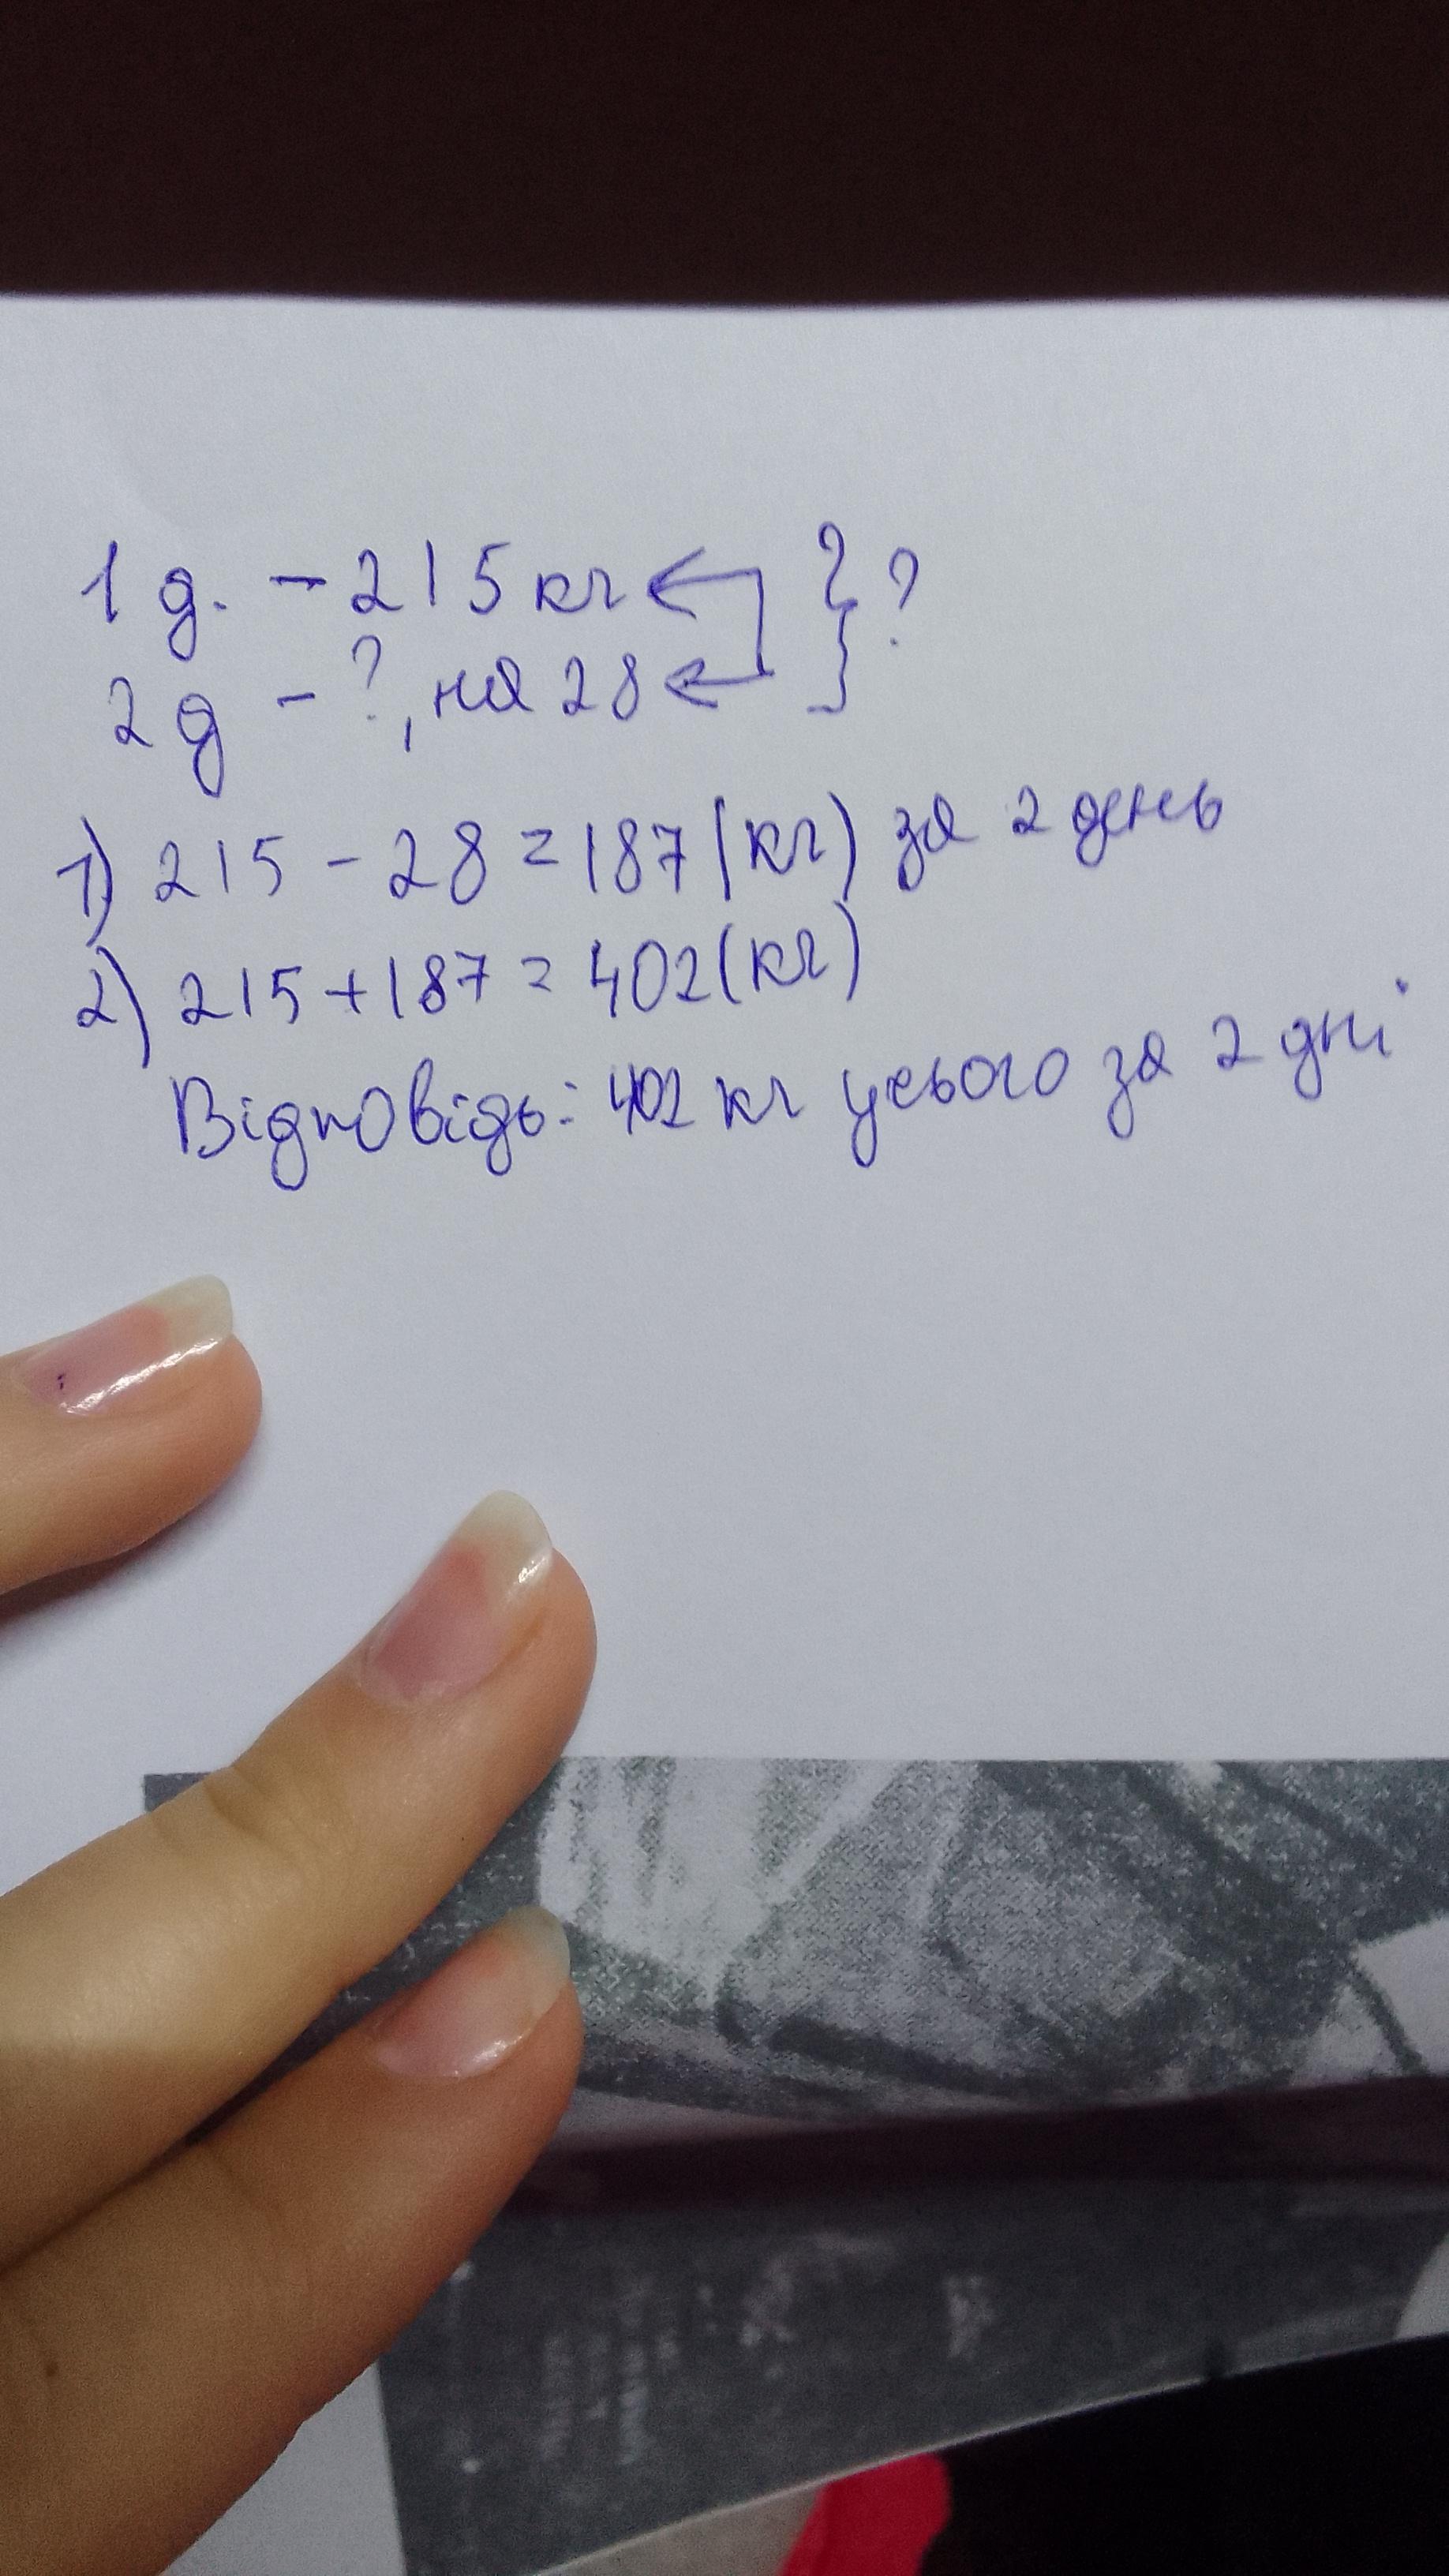 1 д. - 215 кг } ?
2 д - ?, на 28
1) 215 - 28 = 187 (кг) за 2 день
2) 215 + 187 = 402 (кг)
Відповідь: 402 кг усього за 2 дні